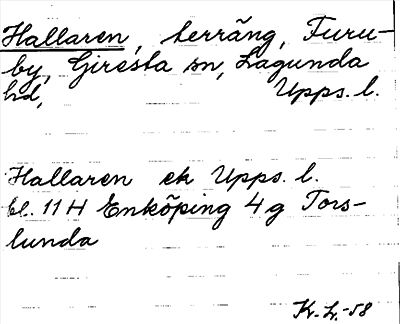 Hallaren, terräng, Furu-
by, Giresta sn, Lagunda
hd, Upps. l.
Hallaren ek Upps. l.
bl. 11 H Enköping 4 g Tors-
lunda
K. L. -58